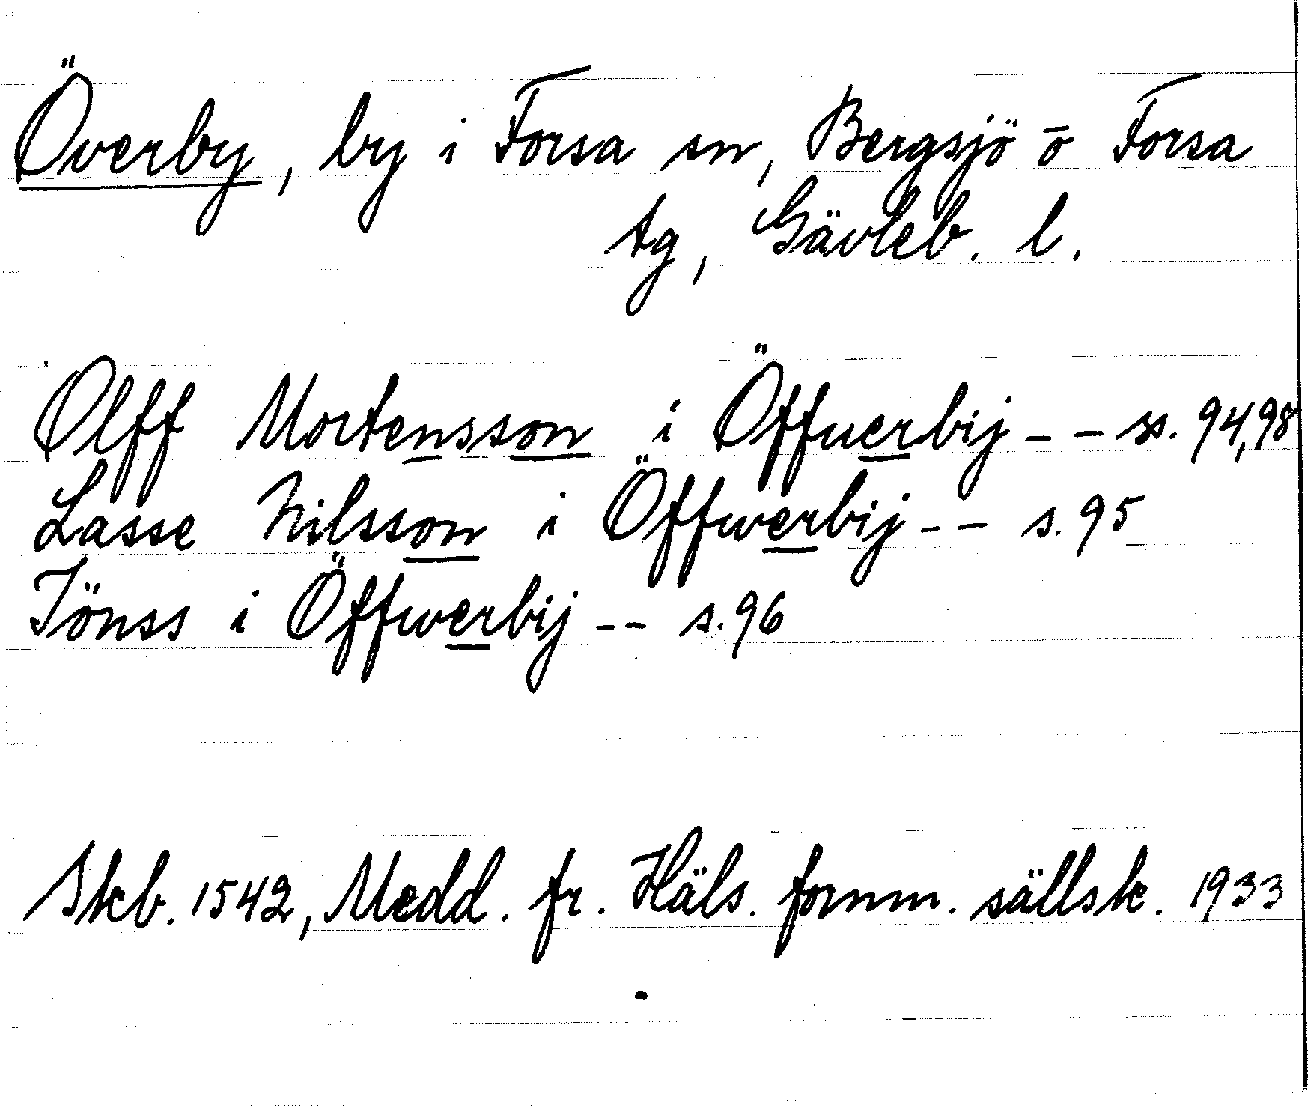 Överby, by i Forsa sn, Bergsjö o Forsa
tg, Gävleb. l.
Olff Mortensson i Öffuerbij - - ss. 94, 98
Lasse Nilsson i Öffwerbij - - s. 95
Jönss i Öffwerbij - - s. 96
Skb. 1542, Medd. fr. Häls. fornm. sällsk. 1933